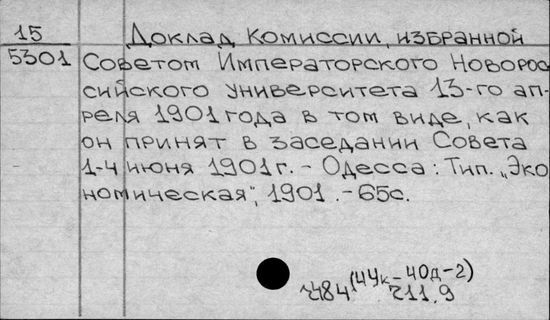 15 Доклад Комиссии, избранной
5301 Советом Императорского Новорос
сийского университета 13-го ап-
реля 1901 года в том виде, как
он принят в заседании Совета
1-4 июня 1901 г. - Одесса: Тип. „Эко
номическая", 1901. - 65с.
(44к-40д-2)
г484 г11.9